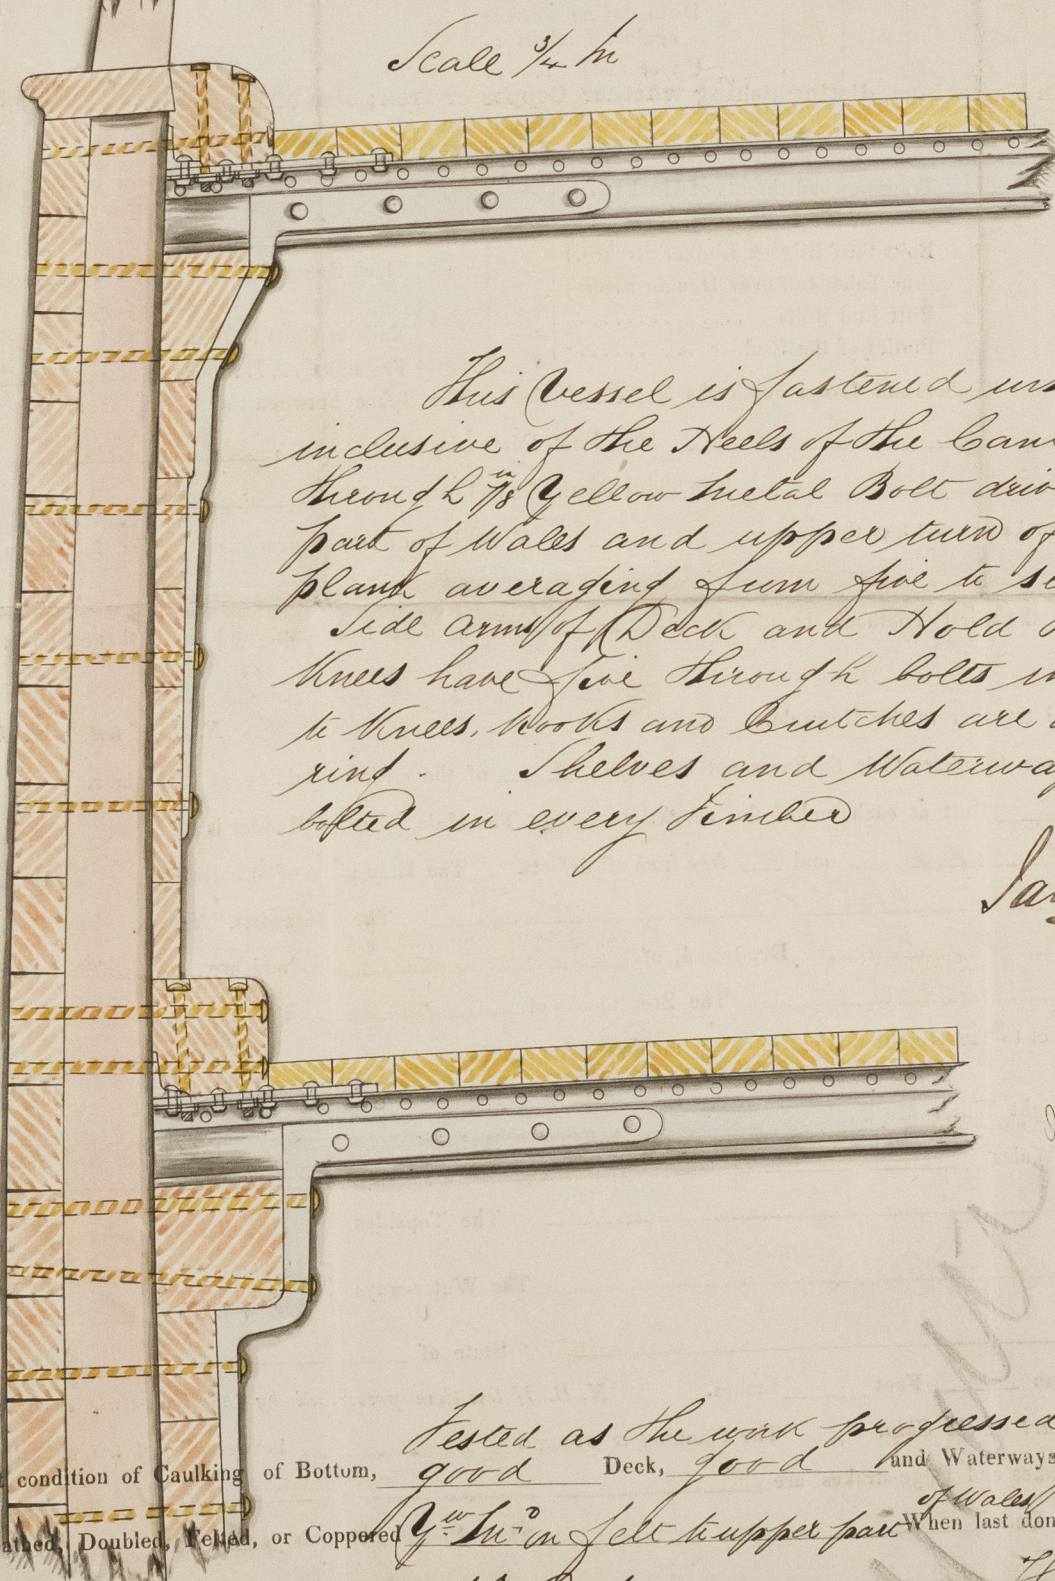 Scale 3/4 In
This Vessel is fastened
inclusive of the Heels of the
through 7/8 in Yellow Metal Bolt
part of Wales and upper turn of
plank averaging from five to
Side Arms of Deck and Hold
Knees have five through bolts
to Knees, Hooks and Crutches are
ring. Shelves and
bolted in every Timber
Tested as the work progressed
condition of Caulking of Bottom, good Deck, good and Waterways
of Wales
Doubled, Felted, or Coppered Yw Mo on felt to upper part When last don